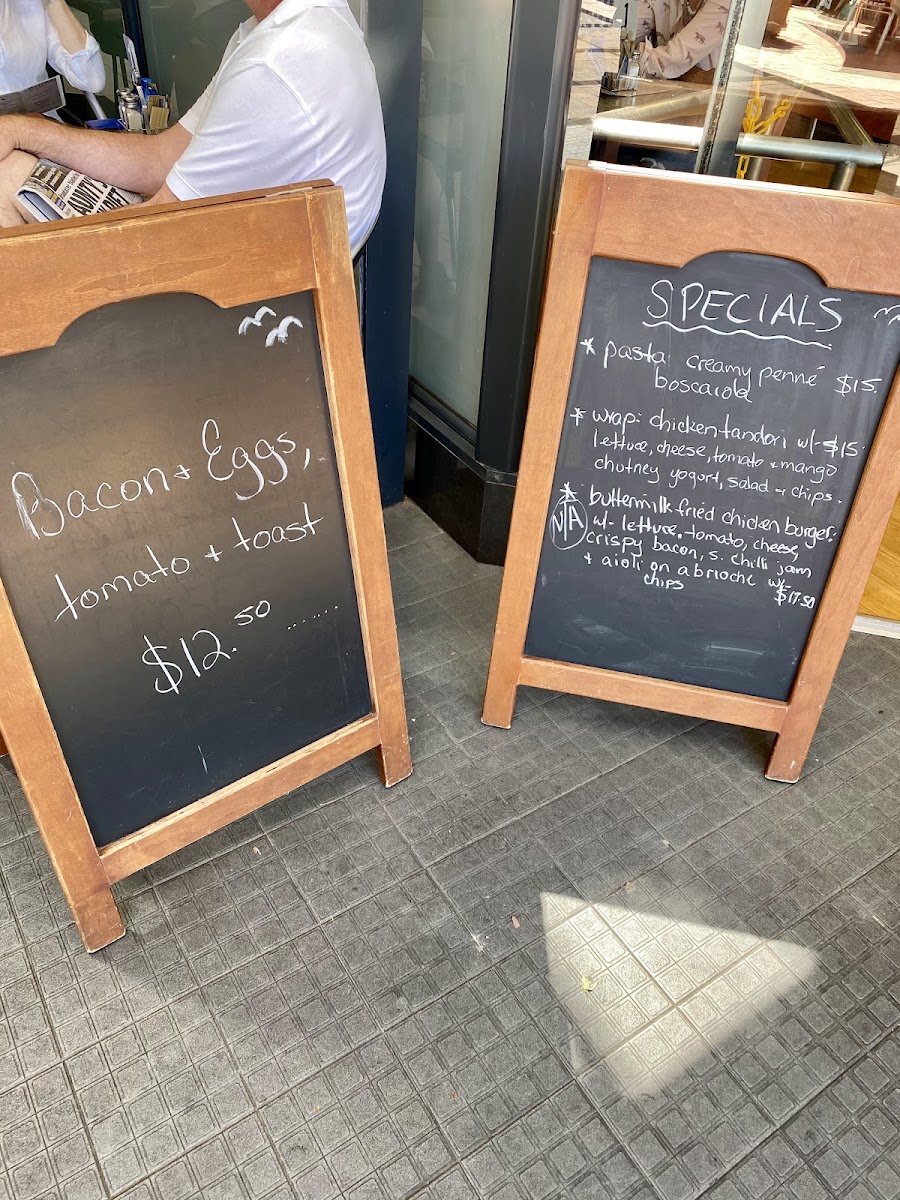 Bacon + Eggs,
tomato + toast
$12.50 .......
SPECIALS
* pasta creamy penné $15.
boscarola
* wrap: chicken tandori w/- $15
lettuce, cheese, tomato + mango
chutney yogurt, salad + chips.
* buttermilk fried chicken burger.
N/A w/- lettuce, tomato, cheese,
crispy bacon, s. chilli jam
+ aioli on a brioche w/-
chips $17.50